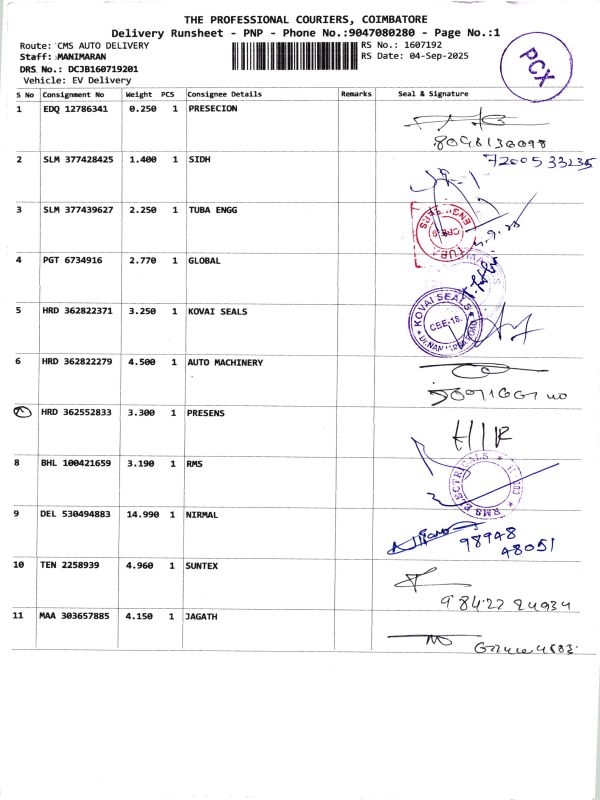 THE PROFESSIONAL COURIERS, COIMBATORE
Delivery Runsheet - PNP - Phone No.:9047080280 - Page No.:1
Route: CMS AUTO DELIVERY RS No.: 1607192
Staff: MANIMARAN RS Date: 04-Sep-2025
DRS No.: DCJB160719201
Vehicle: EV Delivery
PCX
S No Consignment No Weight PCS Consignee Details Remarks Seal & Signature
1 EDQ 12786341 0.250 1 PRESECION
2 SLM 377428425 1.400 1 SIDH 7200533235
3 SLM 377439627 2.250 1 TUBA ENGG
4 PGT 6734916 2.770 1 GLOBAL
5 HRD 362822371 3.250 1 KOVAI SEALS
KOVAI SEALS
CBE-18.
6 HRD 362822279 4.500 1 AUTO MACHINERY
HRD 362552833 3.300 1 PRESENS
8 BHL 100421659 3.190 1 RMS
RMS ELECTRICALS
9 DEL 530494883 14.990 1 NIRMAL
98948
48051
10 TEN 2258939 4.960 1 SUNTEX
11 MAA 303657885 4.150 1 JAGATH